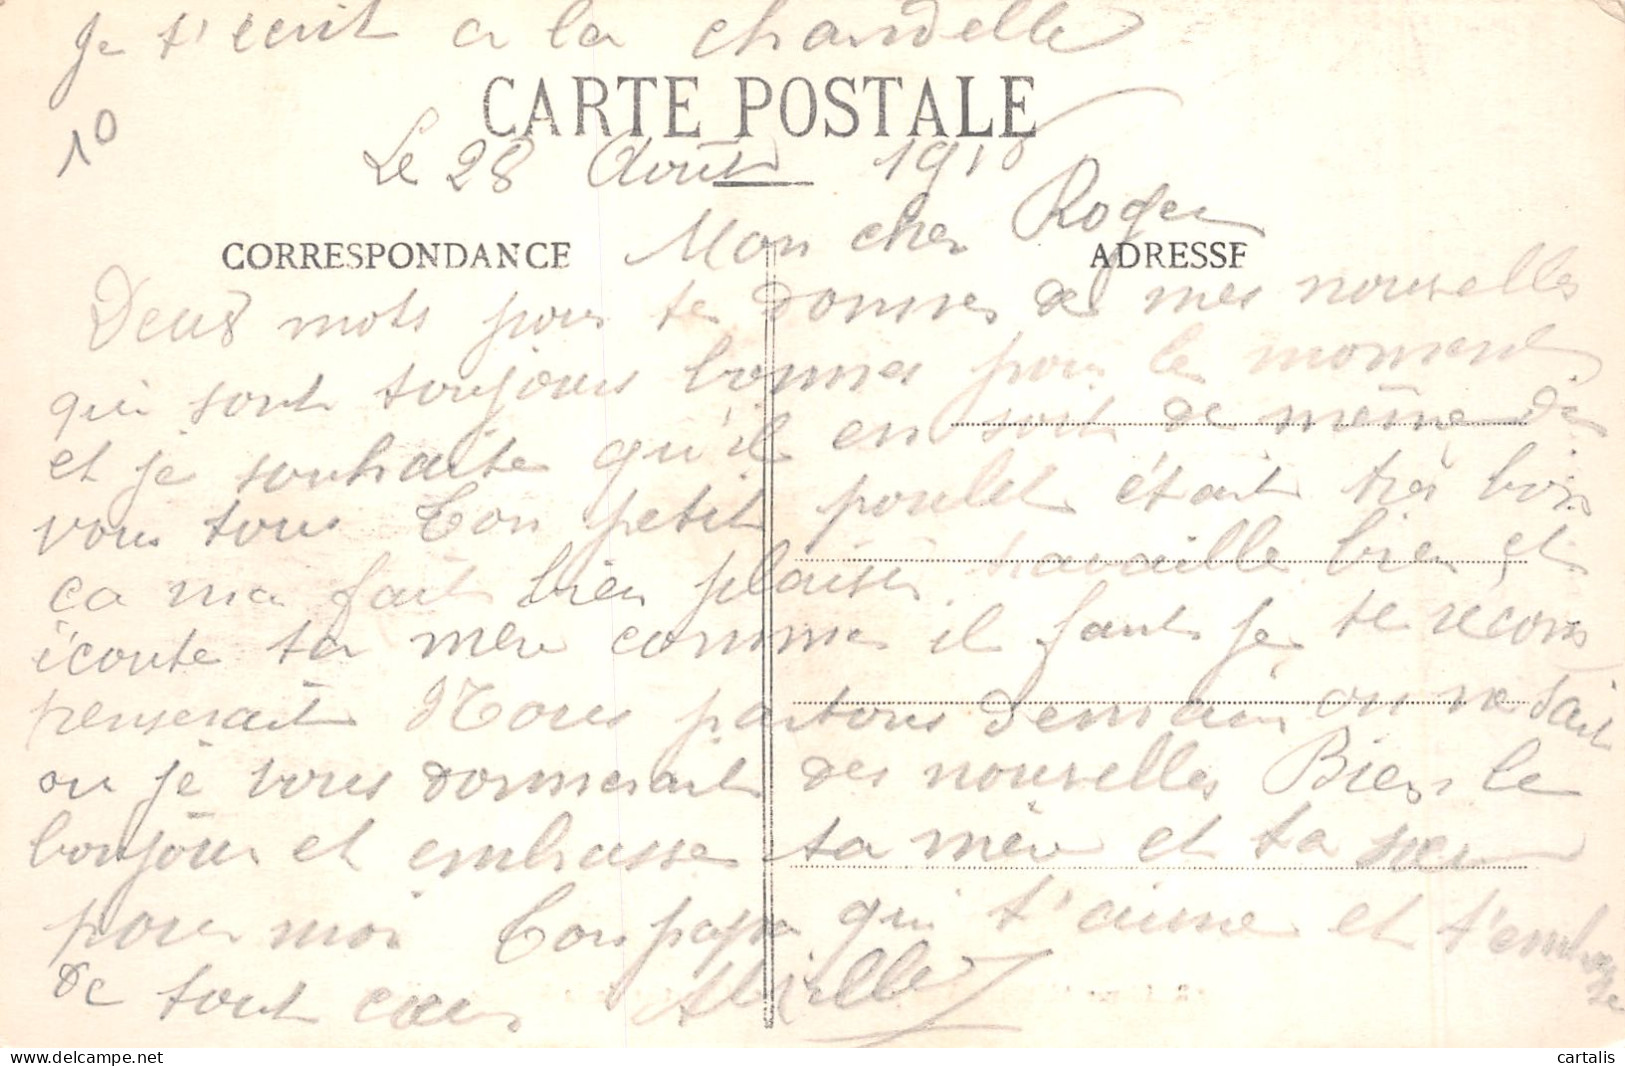 Je t'ecrit a la chandelle
CARTE POSTALE
10
Le 28 Août 191
CORRESPONDANCE
Mon cher Roger
ADRESSE
Deux mots pour te donner de mes nouvelles
qui sont toujours bonnes pour le moment
et je souhaite qu'il en soit de même de
vous tous Ton petit poulet était très bon
ça ma fait bien plaisir travaille bien et
écoute ta mère comme il faut je te récom
penserait Nous partons demain on ne sait
ou je vous donnerait des nouvelles Bien le
bonjour et embrasse ta mère et ta sœur
pour moi Ton papa qui t'aime et t'embrasse
de tout cœur
cartalis